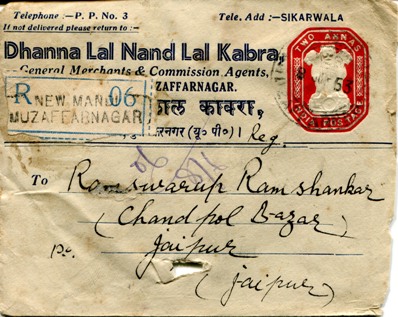 Telephone :–P. P. No. 3 Tele. Add :–SIKARWALA
If not delivered please return to :–
Dhanna Lal Nand Lal Kabra,
General Merchants & Commission Agents,
ZAFFARNAGAR.
R NEW MANDI 06
MUZAFFARNAGAR
ाल कावरा,
रनगर (यू० पी०) Reg.
TWO ANNAS
INDIA POSTAGE
To Romswarup Ramshankar
(Chandpol Bazar)
Jaipur
(Jaipur)